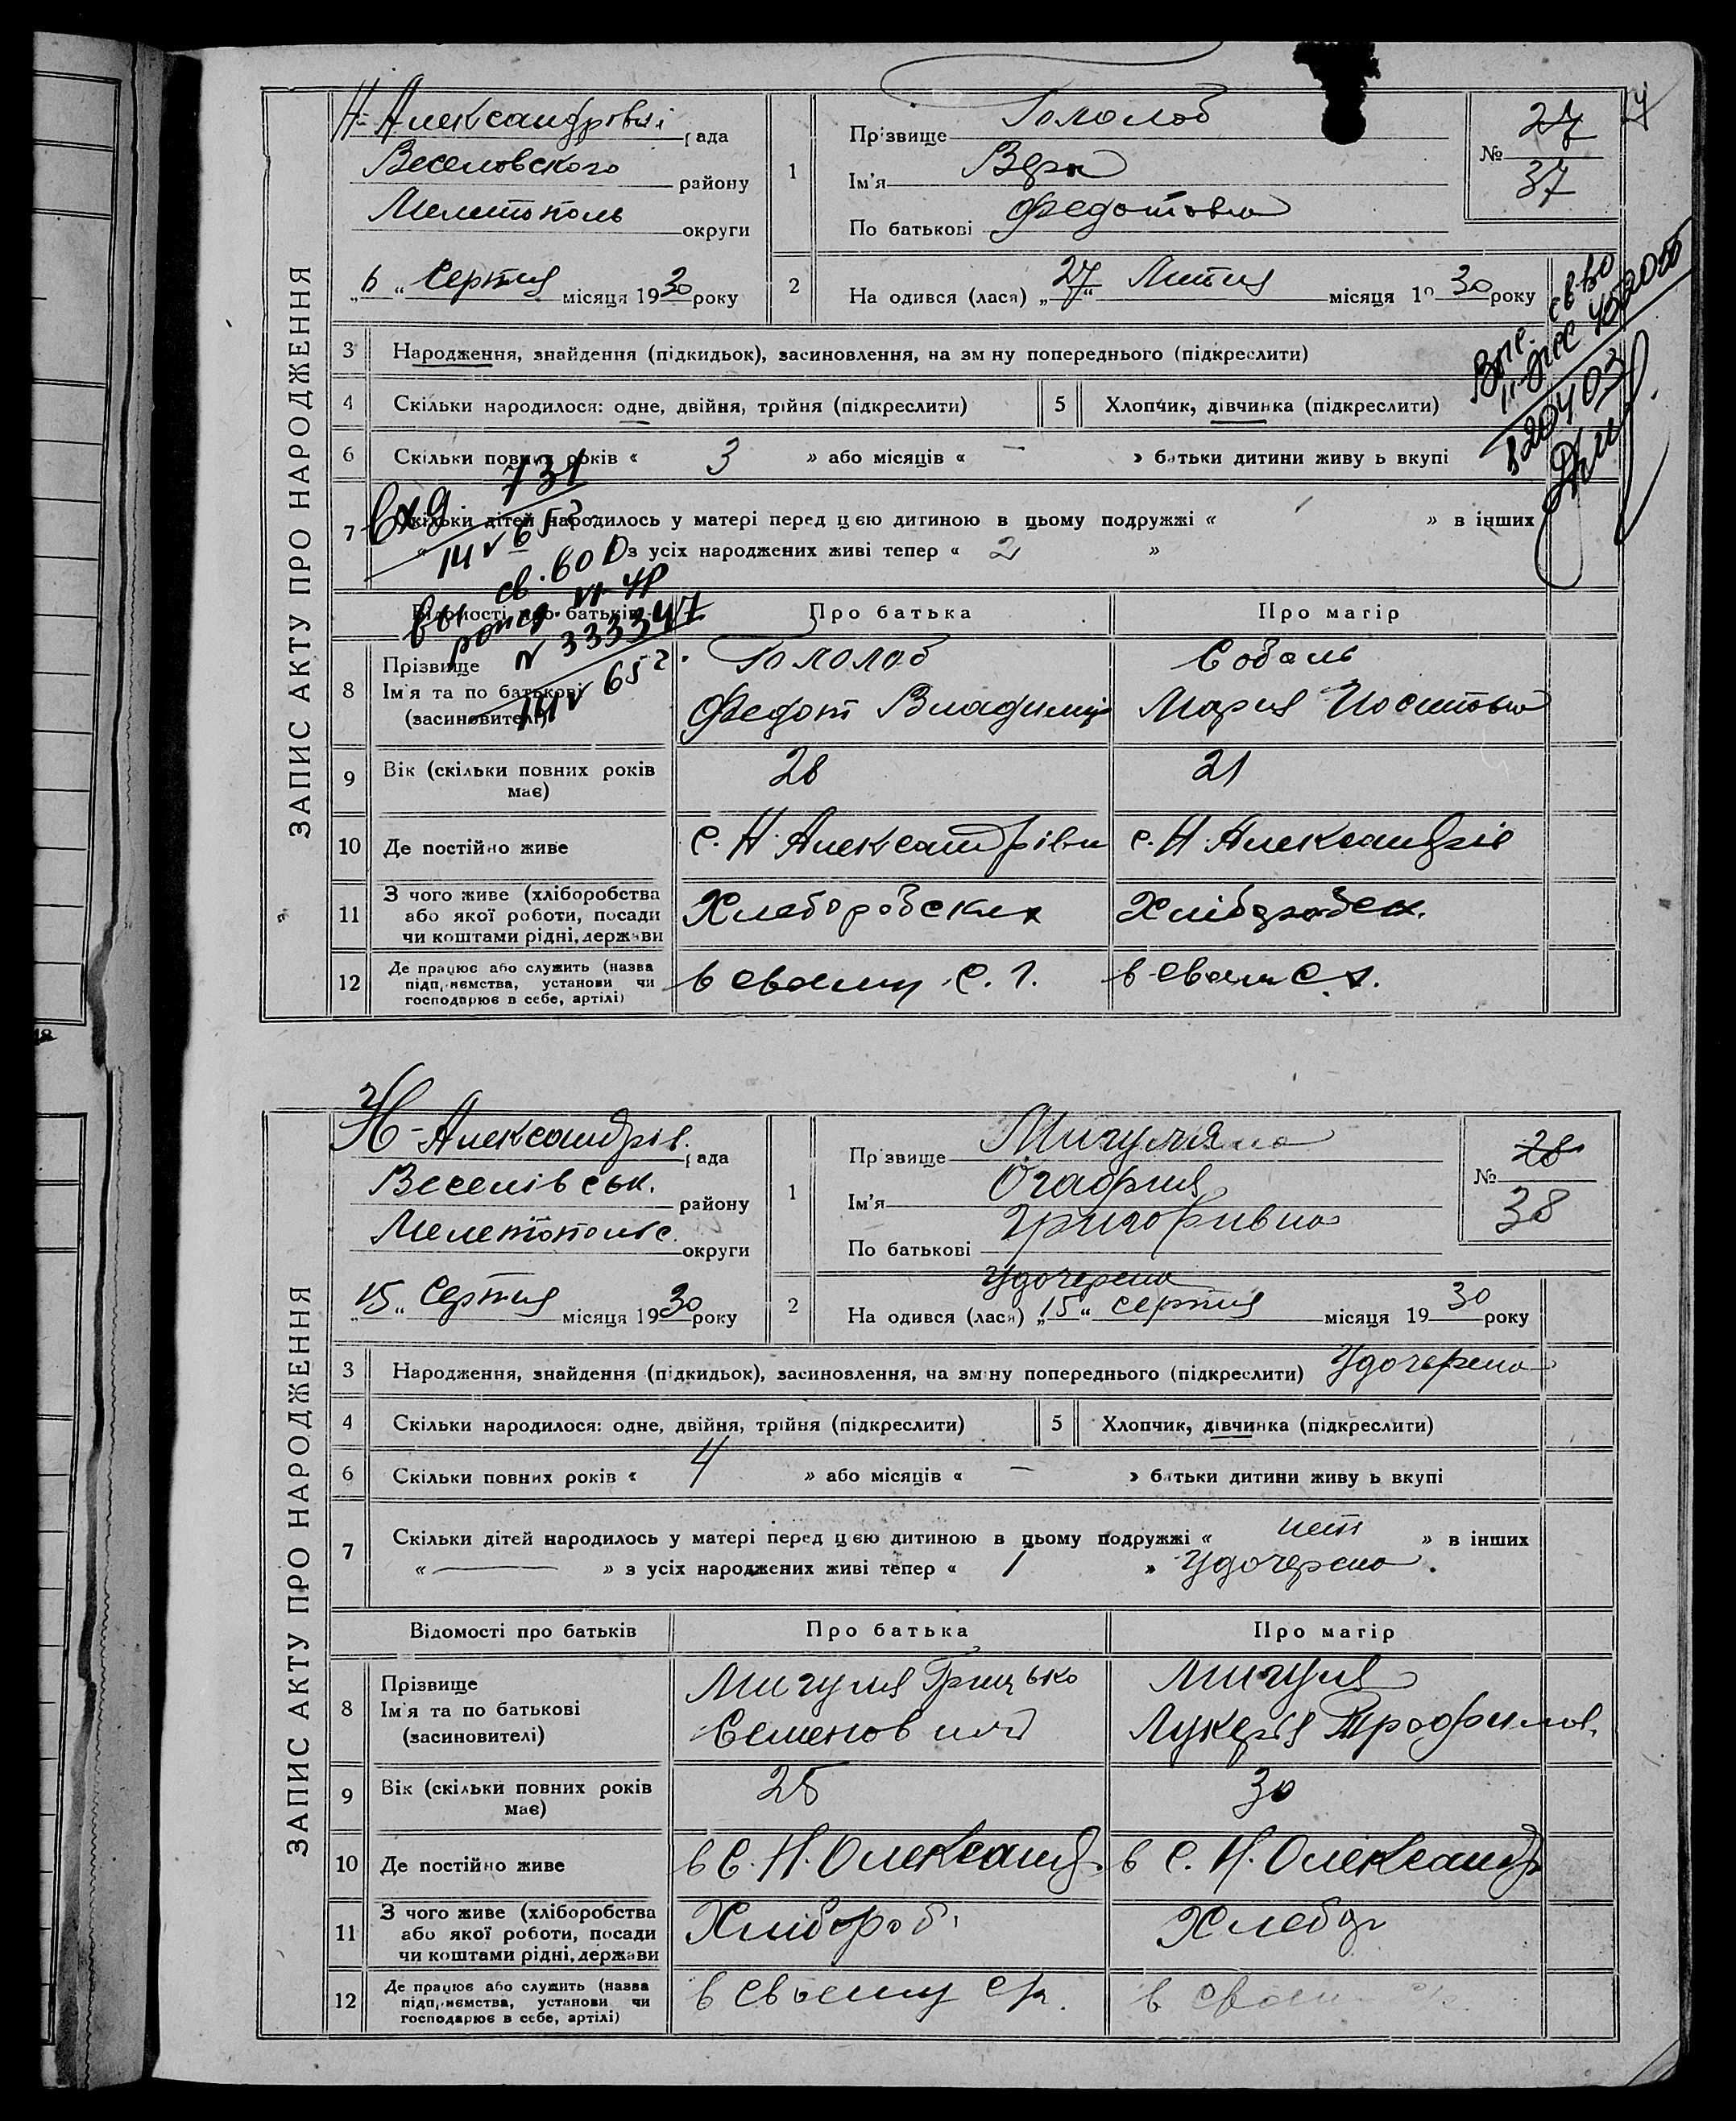 ЗАПИС АКТУ ПРО НАРОДЖЕННЯ
Н-Александрівкі рада
Веселовского району
Мелетополь округи
„6" Серпня місяця 1930 року
1
Прізвище Гололоб
Ім'я Вера
По батькові Федотовна
№ 27
37
2
Народився (лася) „27" Липня місяця 1930 року
3 Народження, знайдення (підкидьок), засиновлення, на зміну попереднього (підкреслити)
4 Скільки народилося: одне, двійня, трійня (підкреслити)
5 Хлопчик, дівчинка (підкреслити)
6 Скільки повних років « 3 » або місяців « — » батьки дитини живуть вкупі
7 Скільки дітей народилось у матері перед цією дитиною в цьому подружжі « 1 » в інших
« » з усіх народжених живі тепер « 2 »
вхд 731
14 V 65 г.
св.
N 333347
14 V 65 г.
Відомості про батьків
Про батька
Про матір
8 Прізвище
Ім'я та по батькові
(засиновителі)
Гололоб
Федот Владимир
Соболь
Мария Иосиповна
9 Вік (скільки повних років
має)
28
21
10 Де постійно живе
с. Н. Александрівки
с. Н. Александрів
11 З чого живе (хліборобства
або якої роботи, посади
чи коштами рідні, держави
Хлеборобских
Хліборобск.
12 Де працює або служить (назва
підприємства, установи чи
господарює в себе, артілі)
в своему С. Г.
в своем С. х.
ЗАПИС АКТУ ПРО НАРОДЖЕННЯ
Н-Александрів. рада
Веселівськ. району
Мелетопольс. округи
„15" Серпня місяця 1930 року
1
Прізвище Мигуля
Ім'я Огафия
По батькові Григоривна
№ 28
38
2
Удочерена
Народився (лася) „15" серпня місяця 1930 року
3 Народження, знайдення (підкидьок), засиновлення, на зміну попереднього (підкреслити) Удочерена
4 Скільки народилося: одне, двійня, трійня (підкреслити)
5 Хлопчик, дівчинка (підкреслити)
6 Скільки повних років « 4 » або місяців « — » батьки дитини живуть вкупі
7 Скільки дітей народилось у матері перед цією дитиною в цьому подружжі « нет » в інших
« — » з усіх народжених живі тепер « 1 » Удочерена.
Відомості про батьків
Про батька
Про матір
8 Прізвище
Ім'я та по батькові
(засиновителі)
Мигуля Грицько
Семенович
Мигуля
Лукерія Трофимов.
9 Вік (скільки повних років
має)
25
30
10 Де постійно живе
в С. Н. Олександ.
в С. Н. Олександр
11 З чого живе (хліборобства
або якої роботи, посади
чи коштами рідні, держави
Хлібороб
Хлебор
12 Де працює або служить (назва
підприємства, установи чи
господарює в себе, артілі)
в своему
в своем